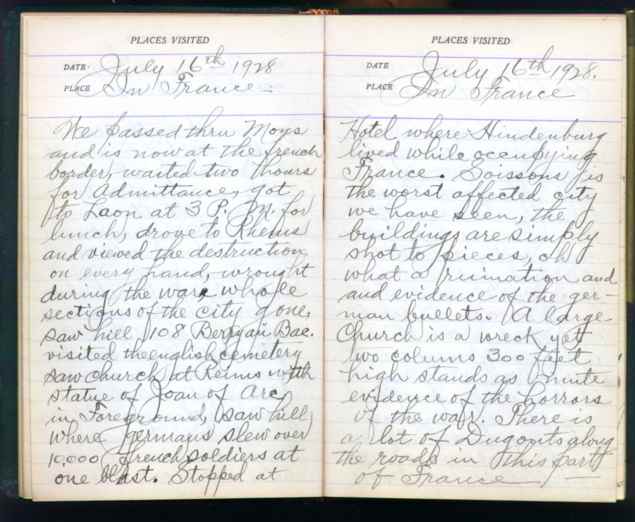 PLACES VISITED
DATE July 16th 1928
PLACE In France
We passed thru Mons
and is now at the french
border, waited two hours
for admittance, got
to Laon at 3 P. M. for
lunch, drove to Rheims
and viewed the destruction
on every hand, wrought
during the war, whole
sections of the city gone,
saw hill 108 Berryau Bac.
visited the english cemetery
saw church at Reims with
statue of Joan of Arc
in Foreground, saw hill
where germans slew over
10,000 french soldiers at
one blast. Stopped at
PLACES VISITED
DATE July 16th 1928.
PLACE In France
Hotel where Hindenburg
lived while occupying
France. Soissons is
the worst affected city
we have seen, the
buildings are simply
shot to pieces, oh
what a ruination and
and evidence of the ger-
man bullets. A large
Church is a wreck yet
two columns 300 feet
high stands as mute
evidence of the horrors
of the war. There is
a lot of Dugouts along
the roads in this part
of France —